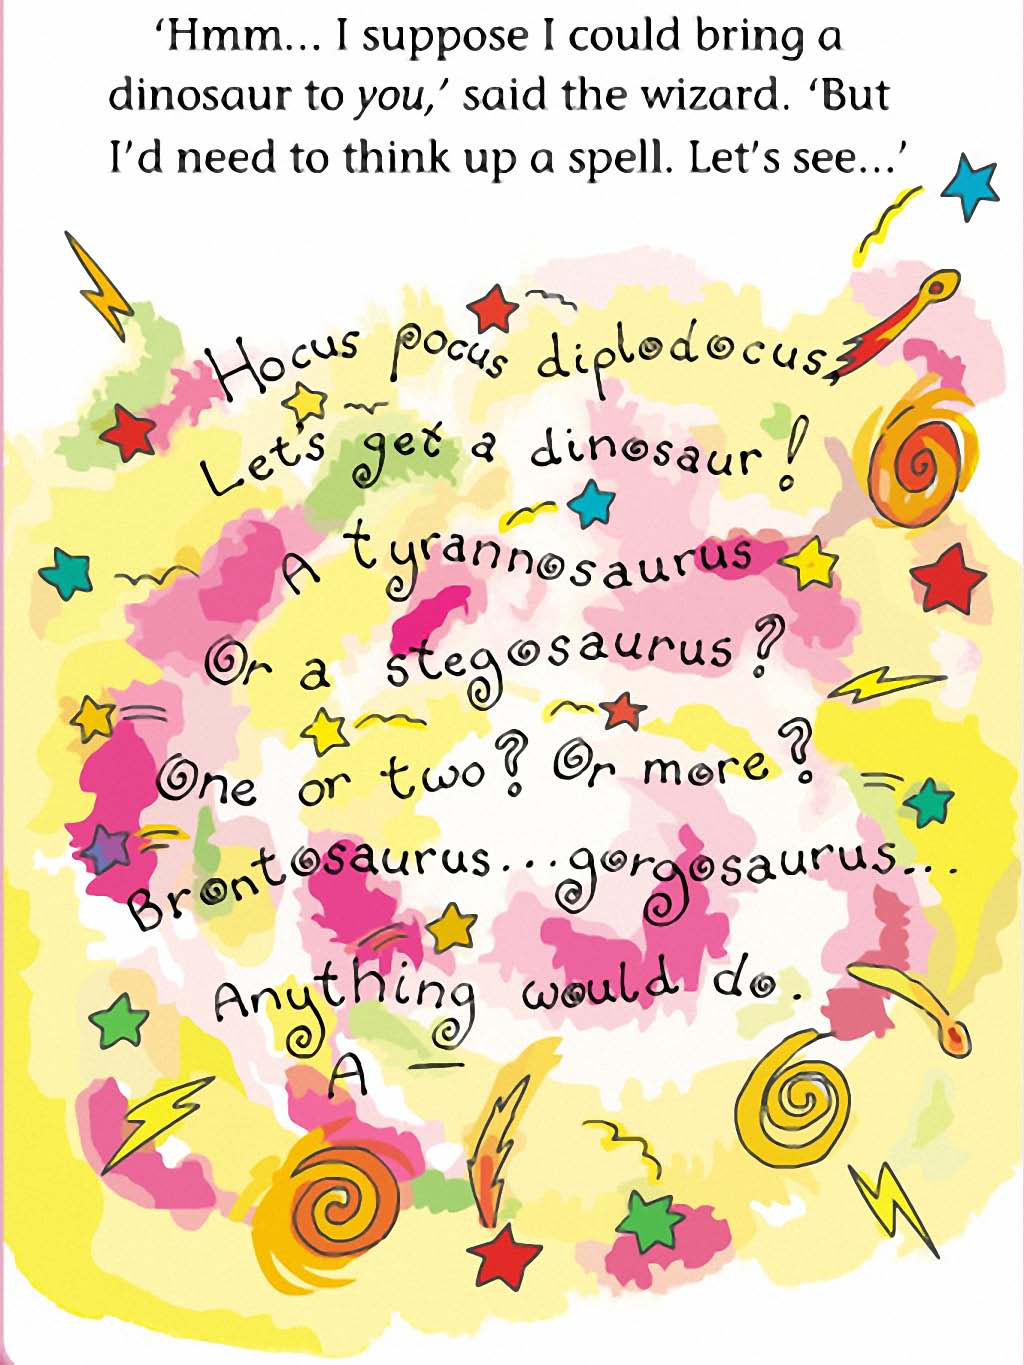 ‘Hmm... I suppose I could bring a
dinosaur to you,’ said the wizard. ‘But
I’d need to think up a spell. Let’s see...’
Hocus pocus diplodocus,
Let's get a dinosaur!
A tyrannosaurus
Or a stegosaurus?
One or two? Or more?
Brontosaurus...gorgosaurus...
Anything would do.
A —